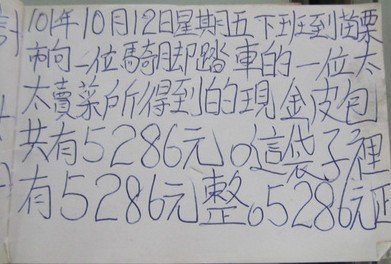 101年10月12日星期五下班到苗栗
市向一位騎脚踏車的一位太
太賣菜所得到的現金皮包
共有5286元。這袋子裡
有5286元整。5286元正